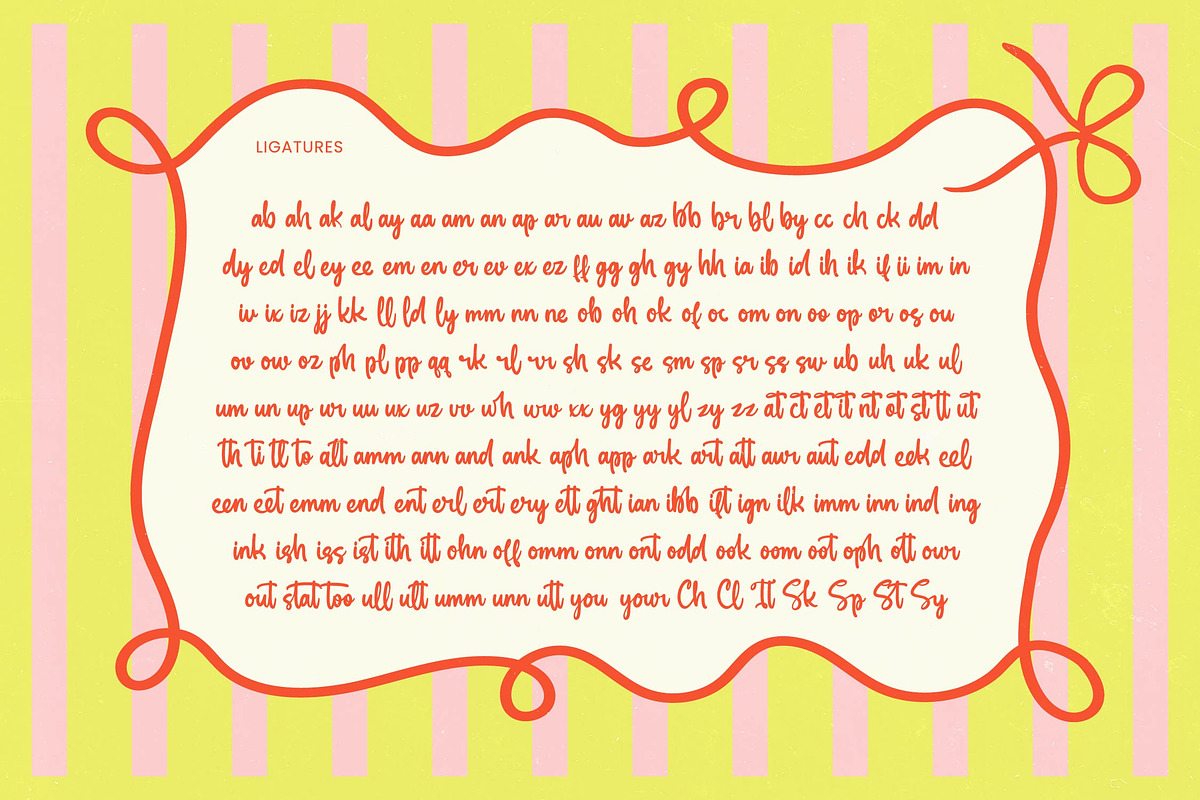 LIGATURES
ab ah ak al ay aa am an ap ar au av az bb br bl by cc ch ck dd
dy ed el ey ee em en er ev ex ez ff gg gh gy hh ia ib id ih ik if ii im in
iv ix iz jj kk ll ld ly mm nn ne ob oh ok of oc om on oo op or os ou
ov ow oz ph pl pp qq rk rl rr sh sk se sm sp sr ss sw ub uh uk ul
um un up ur uu ux uz vv wh ww xx yg yy yl zy zz at ct et it nt ot st tt ut
th ti tl to alt amm ann and ank aph app ark art att awr aut edd eek eel
een eet emm end ent erl ert ery ett ght ian ibb ift ign ilk imm inn ind ing
ink ish iss ist ith itt ohn off omm onn ont odd ook oom oot oph ott owr
out stat too ull ult umm unn utt you your Ch Cl It Sk Sp St Sy